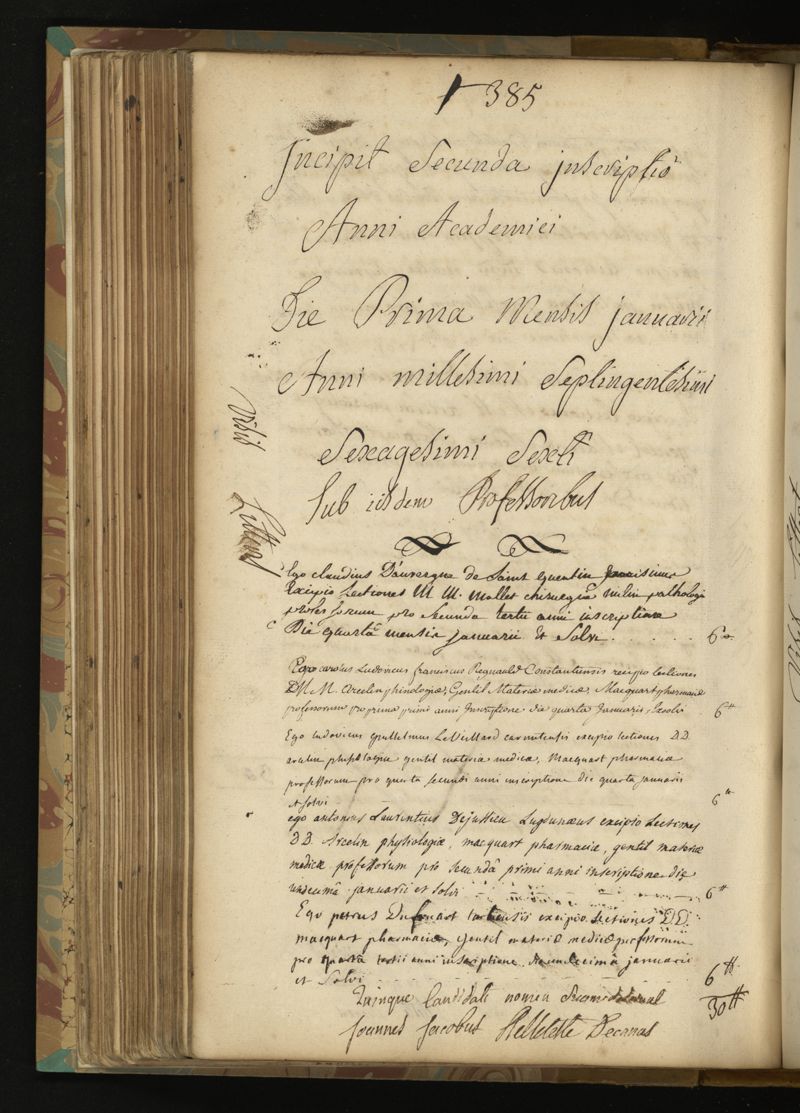 385
Incipit Secunda inscriptio
Anni Academici
Die Prima Mensis januarii
Anni millesimi Septingentesimi
Sexagesimi Sexti
Sub iisdem Professoribus
Ego claudius D'auvergne de Saint quentin
Excipio Lectiones M M. Mollet chirurgiae
professorum pro Secunda tertii anni inscriptione
Die quarta mensis januarii et Solvi . . . . . . 6
Ego carolus Ludovicus franciscus Regnauld Constantiensis recipio lectiones
D.M.M. Arcelin phisiologiae, Gentil Materiae medicae, Macquart pharmaciae
professorum pro prima primi anni Inscriptione die quarta Januarii, et solvi 6#
Ego ludovicus guillelmus LeVeillard carnutensis excipio lectiones D.D.
arcelin phisiologiae gentil materia medica, Macquart pharmacia
professorum pro quarta secundi anni inscriptione die quarta januarii
et solvi 6#
ego antonius Laurentius Dejussieu Lugdunaeus excipio Lectiones
DD. Arcelin physiologiae, macquart pharmaciae, gentil materiae
medicae professorum pro secundâ primi anni inscriptione die
undecimâ januarii et solvi 6#
Ego petrus excipio Lectiones D.D.
macquart pharmaciae, Gentil materiae medicae professorum
pro quarta tertii anni inscriptione, die undecimâ januarii
et Solvi 6#
Quinque Candidati nomen 30#
Joannes Jacobus Belleteste Decanus